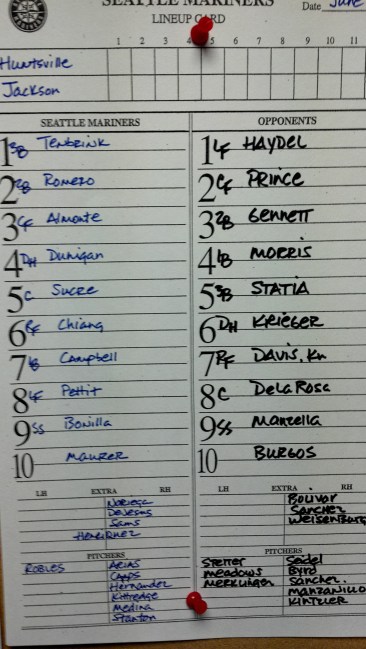 SEATTLE MARINERS
LINEUP CARD
Date June
1 2 3 4 5 6 7 8 9 10 11
Huntsville
Jackson
SEATTLE MARINERS
1 3B Tenbrink
2 2B Romero
3 CF Almonte
4 DH Dunigan
5 C Sucre
6 RF Chiang
7 1B Campbell
8 LF Pettit
9 SS Bonilla
10 MAURER
LH EXTRA RH
Noriega
DeJesus
Sams
Henriquez
PITCHERS
ROBLES Arias
Capps
Hernandez
Kittredge
Medina
Stanton
OPPONENTS
1 LF HAYDEL
2 CF PRINCE
3 2B GENNETT
4 1B MORRIS
5 3B STATIA
6 DH KRIEGER
7 RF DAVIS, Kn
8 C DeLaRosa
9 SS Manzella
10 BURGOS
LH EXTRA RH
Bolivar
Sanchez
Weisenburg
PITCHERS
Stetter Seidel
meadows Byrd
Merklinger Sanchez.
MANZANILLO
KINTZLER